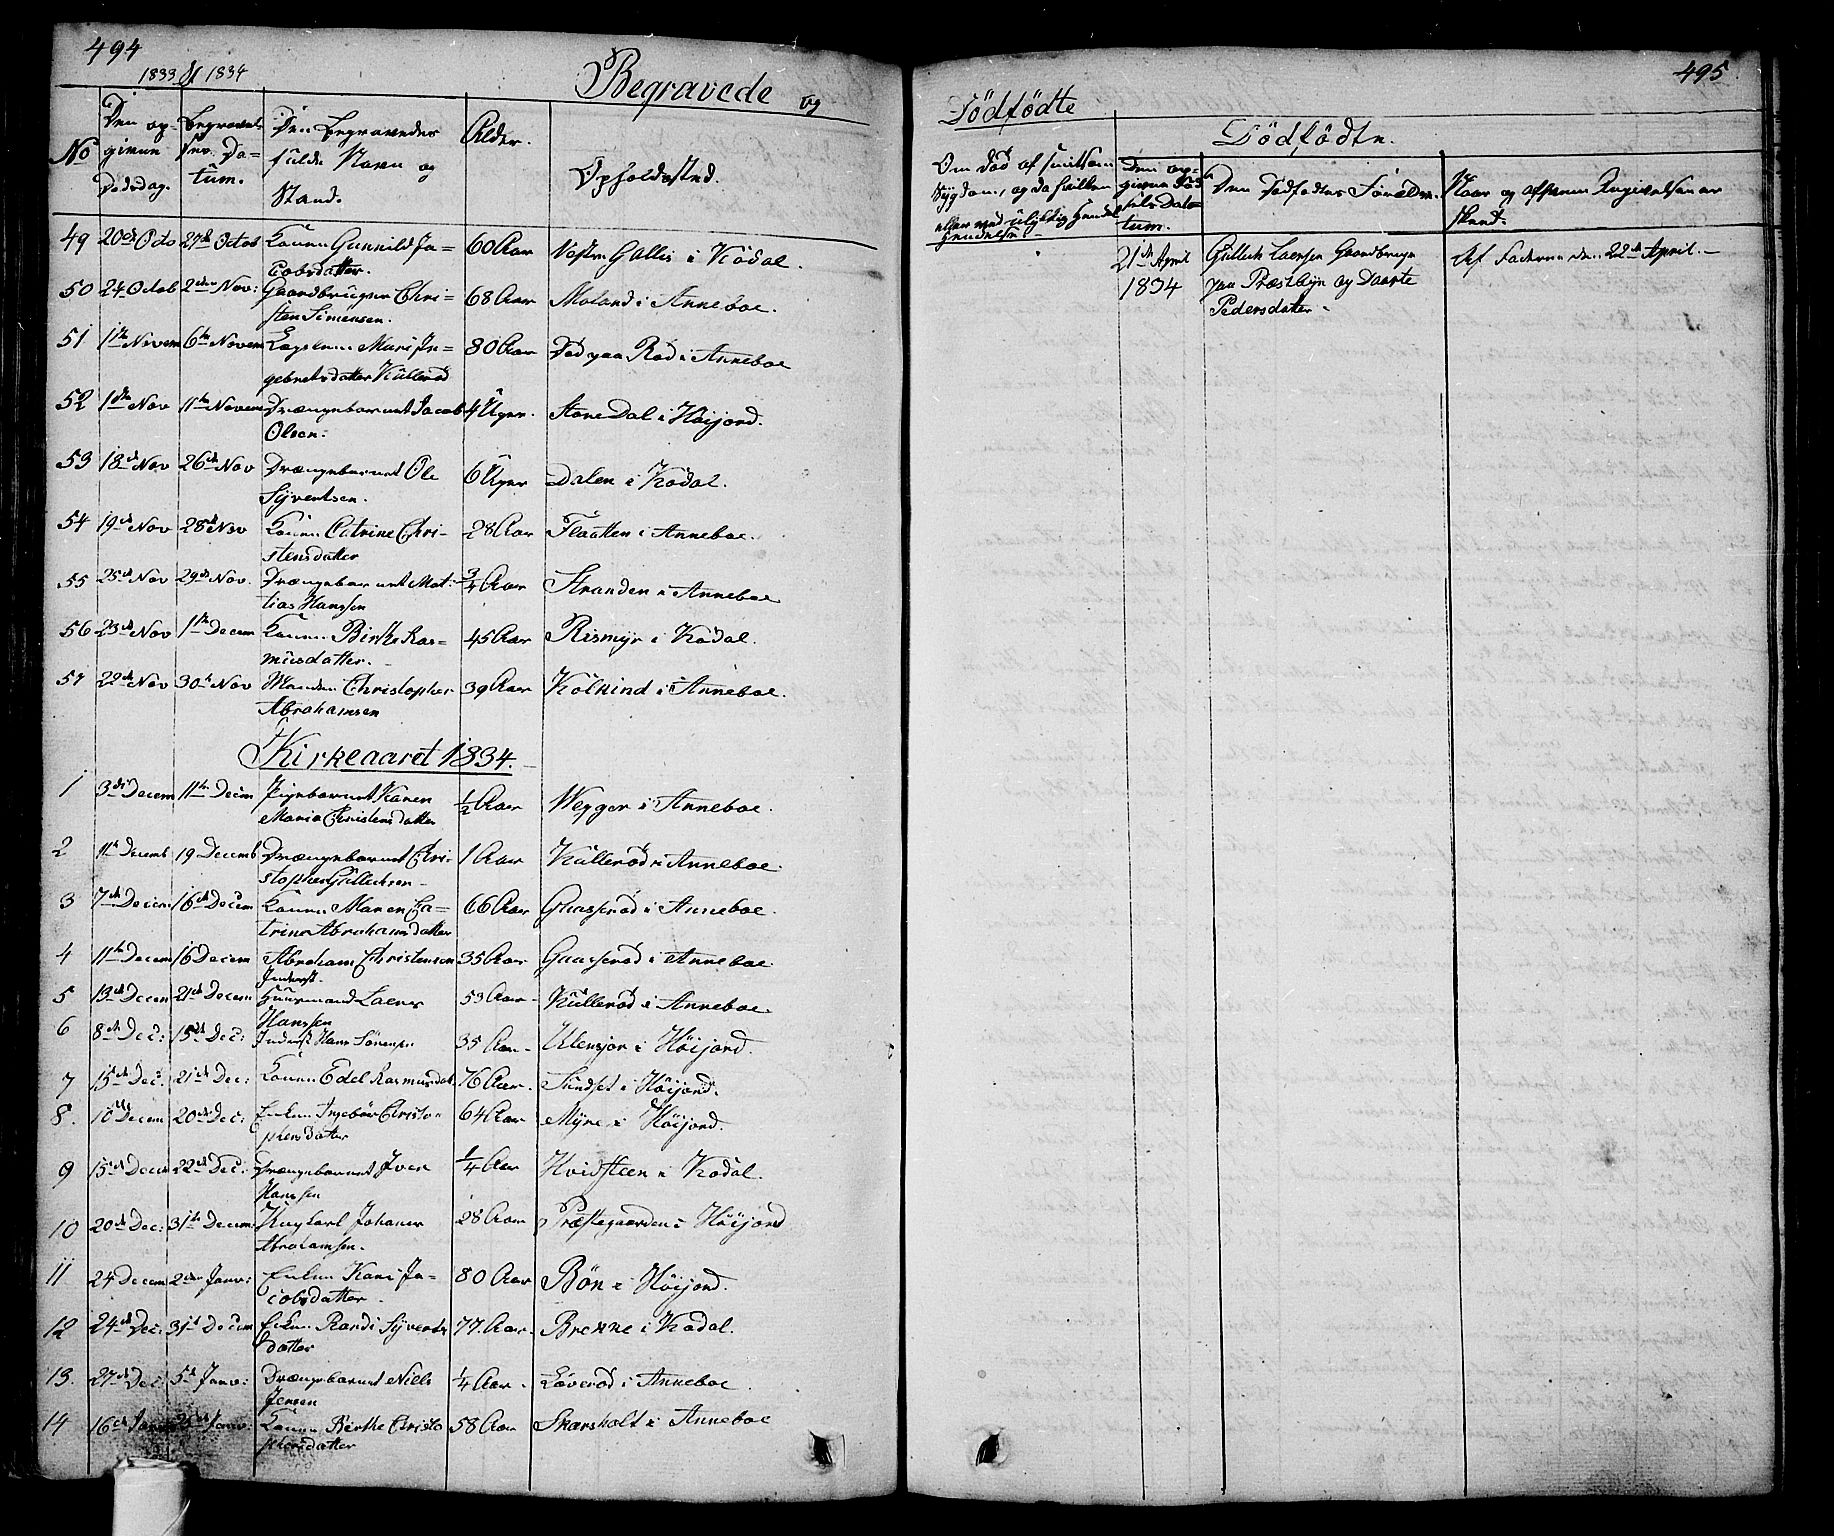 494
1833 & 1834
Begravede og
No
Den op-
givne
Dødsdag.
Begravel-
sens Da-
tum.
Den Begravedes
fulde Navn og
Stand.
Alder.
Opholdssted.
49 20de Octo 27de Octob Konen Gunnild Ja-
cobsdatter. 60 Aar Vestre Gallis i Kodal.
50 24 Octob 2den Nov: Gaardbruger Chri-
sten Simensen. 68 Aar Moland i Anneboe.
51 1ste Novem 6te Novem Mari In-
gebretsdatter Küllerød 80 Aar Død paa Rød i Anneboe
52 1ste Nov 11te Novem Drængebarnet Jacob
Olsen. 4 Uger. Store Dal i Höijord.
53 18de Nov 26de Nov Drængebarnet Ole
Syvertsen. 6 Uger Dalen i Kodal.
54 19de Nov 28de Nov Konen Catrine Chri-
stensdatter 28 Aar Flaatten i Anneboe.
55 25de Nov 29de Nov. Drængebarnet Mat-
tias Hanssen 3/4 Aar Stranden i Anneboe
56 23de Nov 1ste Decem Konen Birthe Ras-
musdatter. 45 Aar Rismyr i Kodal.
57 22de Nov 30te Nov Manden Christopher
Abrahamsen 39 Aar Kolkind i Anneboe.
Kirkeaaret 1834.
1 3die Decem 11te Decem Pigebarnet Karen
Maria Christensdatter 1/2 Aar Wegger i Anneboe.
2 11te Decemb 19 Decemb Drængebarnet Chri-
stopher Gullichsen 1 Aar Küllerød i Anneboe.
3 7de Decem 16de Decem Konen Maren Ca-
trine Abrahamsdatter 66 Aar Gaasserød i Anneboe.
4 11te Decem 16 Decem Abraham Christensen
Inderst. 35 Aar Gaasserød i Anneboe.
5 13de Decem 21de Decem Huusmand Laers
Hanssen 53 Aar Küllerød i Anneboe.
6 8de Dec: 15de Dec: Inderst Hans Sörensen 35 Aar Ulensjor i Höijord.
7 15de Dec. 21de Dec: Konen Edel Rasmusdat. 76 Aar. Sundset i Höijord.
8. 10de Decem 20de Dec: Enken Ingebör Christo-
phersdatter 64 Aar Myre i Höijord.
9 15de Decem 22de Dec: Drængebarnet Iver
Hanssen 1/4 Aar Hvidsteen i Kodal.
10 20de Dec: 31te Decem: Ungkarl Johanes
Abrahamsen. 28 Aar Præstegaarden i Höijord
11 24 Decem 2den Janv: Enken Kari Ja-
cobsdatter 80 Aar Bön i Höijord.
12 24de Dec: 31te Decem Enken Randi Syverts
datter 77 Aar. Brekke i Kodal.
13. 27de Dec: 5te Janv: Drængebarnet Niels
Jensen 1/4 Aar. Löverød i Anneboe
14 16de Janv 25de Janv: Konen Berthe Christo
phersdatter 58 Aar Skarsholt i Anneboe
495
Dödfödte
Om død af smitsom
Sygdom, og da hvilken
eller ved ulykkelig Hændel
Hendelse
Dödfödte.
Den op-
givne Fød-
sels Da-
tum.
Den Dødfødtes Forældre.
Naar og af hvem Angivelsen er
skeed.
21de April
1834
Gullich Laersen Gaardbruger
paa Præstbyn og Daarte
Pedersdatter.
Af Faderen den 22de April.